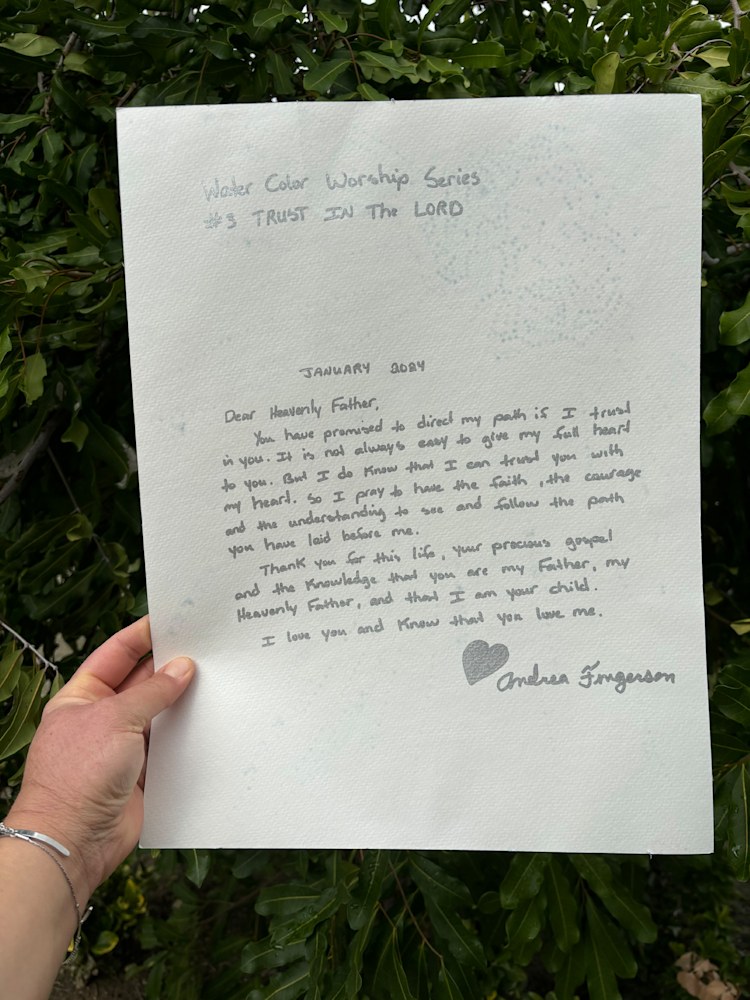 Water Color Worship Series
#3 TRUST IN The LORD
JANUARY 2024
Dear Heavenly Father,
You have promised to direct my path if I trust
in you. It is not always easy to give my full heart
to you. But I do know that I can trust you with
my heart. So I pray to have the faith, the courage
and the understanding to see and follow the path
you have laid before me.
Thank you for this life, your precious gospel
and the knowledge that you are my Father, my
Heavenly Father, and that I am your child.
I love you and know that you love me.
Andrea Fingerson